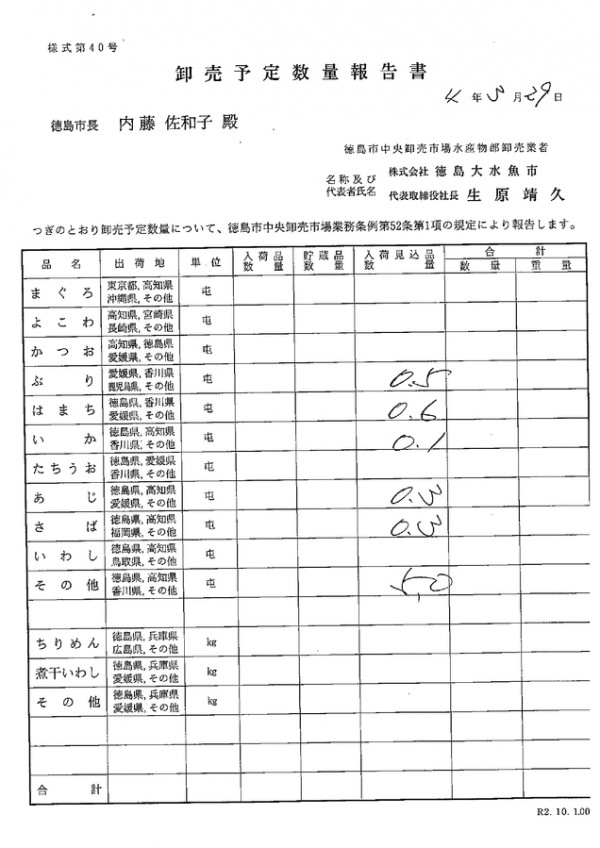 様式第40号
卸売予定数量報告書
4年3月29日
徳島市長 内藤 佐和子 殿
徳島市中央卸売市場水産物部卸売業者
名称及び 株式会社 徳島大水魚市
代表者氏名 代表取締役社長 生原靖久
つぎのとおり卸売予定数量について、徳島市中央卸売市場業務条例第52条第1項の規定により報告します。
品名 出荷地 単位 入荷品数量 貯蔵品数量 入荷見込品数量 合計
数量 重量
まぐろ 東京都, 高知県 沖縄県, その他 屯
よこわ 高知県, 宮崎県 長崎県, その他 屯
かつお 高知県, 徳島県 愛媛県, その他 屯
ぶり 愛媛県, 香川県 鹿児島県, その他 屯 0.5
はまち 徳島県, 香川県 愛媛県, その他 屯 0.6
いか 徳島県, 高知県 香川県, その他 屯 0.1
たちうお 徳島県, 愛媛県 香川県, その他 屯
あじ 徳島県, 高知県 愛媛県, その他 屯 0.3
さば 徳島県, 高知県 福岡県, その他 屯 0.3
いわし 徳島県, 高知県 鳥取県, その他 屯
その他 徳島県, 高知県 香川県, その他 屯 5.0
ちりめん 徳島県, 兵庫県 広島県, その他 kg
煮干いわし 徳島県, 兵庫県 愛媛県, その他 kg
その他 徳島県, 兵庫県 愛媛県, その他 kg
合計
R2. 10. 1.00